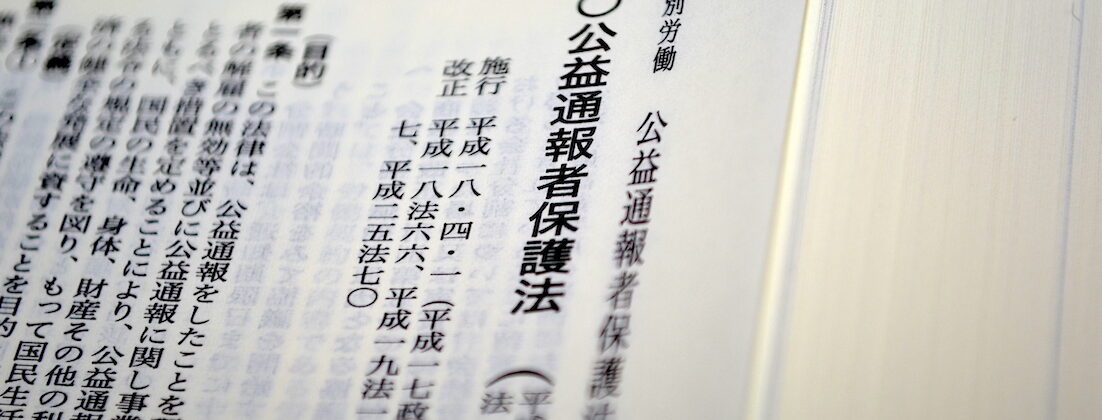 別労働
公益通報者保護法
〇公益通報者保護法
（平
法
施行 平成一八・四・一（平成一七政
改正 平成一八法六六、平成一九法一
七、平成二五法七〇
（目的）
第一条 この法律は、公益通報をしたことを
者の解雇の無効等並びに公益通報に関し事
とるべき措置を定めることにより、公益通報
ともに、国民の生命、身体、財産その他の利
る法令の規定の遵守を図り、もって国民生活
済の健全な発展に資することを目的
（定義）